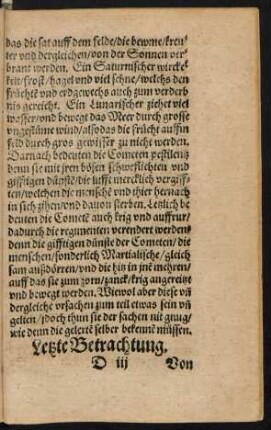 das die sat auff dem felde/die bewme/kreu-
ter vnd dergleichen/von der Sonnen ver-
brant werden. Ein Saturnischer wircke-
kelt/frost/hagel vnd viel schne/welchs den
früchtē vnd erdgewechs auch zum verderb-
nis gereicht. Ein Lunarischer ziehet viel
wasser/vnd bewegt das Meer durch grosse
vngestüme wind/also das die frücht auffm
feld durch gros gewisser zu nicht werden.
Darnach bedeuten die Cometen pestilentz
denn sie mit jren bösen schweflichten vnd
gifftigen dünstē/die lufft mercklich vergiff-
ten/welchen die menschē vnd thier hernach
in sich zihen/vnd dauon sterben. Letzlich be
deuten die Cometē auch krig vnd auffrur/
dadurch die regimenten verendert werden
denn die gifftigen dünste der Cometen/die
menschen/sonderlich Martialische/gleich
sam außdörren/vnd die hitz in jnē mehren/
auff das sie zum zorn/zanck/krig angereitzt
vnd bewegt werden. Wiewol aber diese vñ
dergleiche vrsachen zum teil etwas sein vñ
gelten/jdoch thun sie der sachen nit gnug/
wie denn die gelertē selber bekennē müssen.
Letzte Betrachtung.
D iij Von